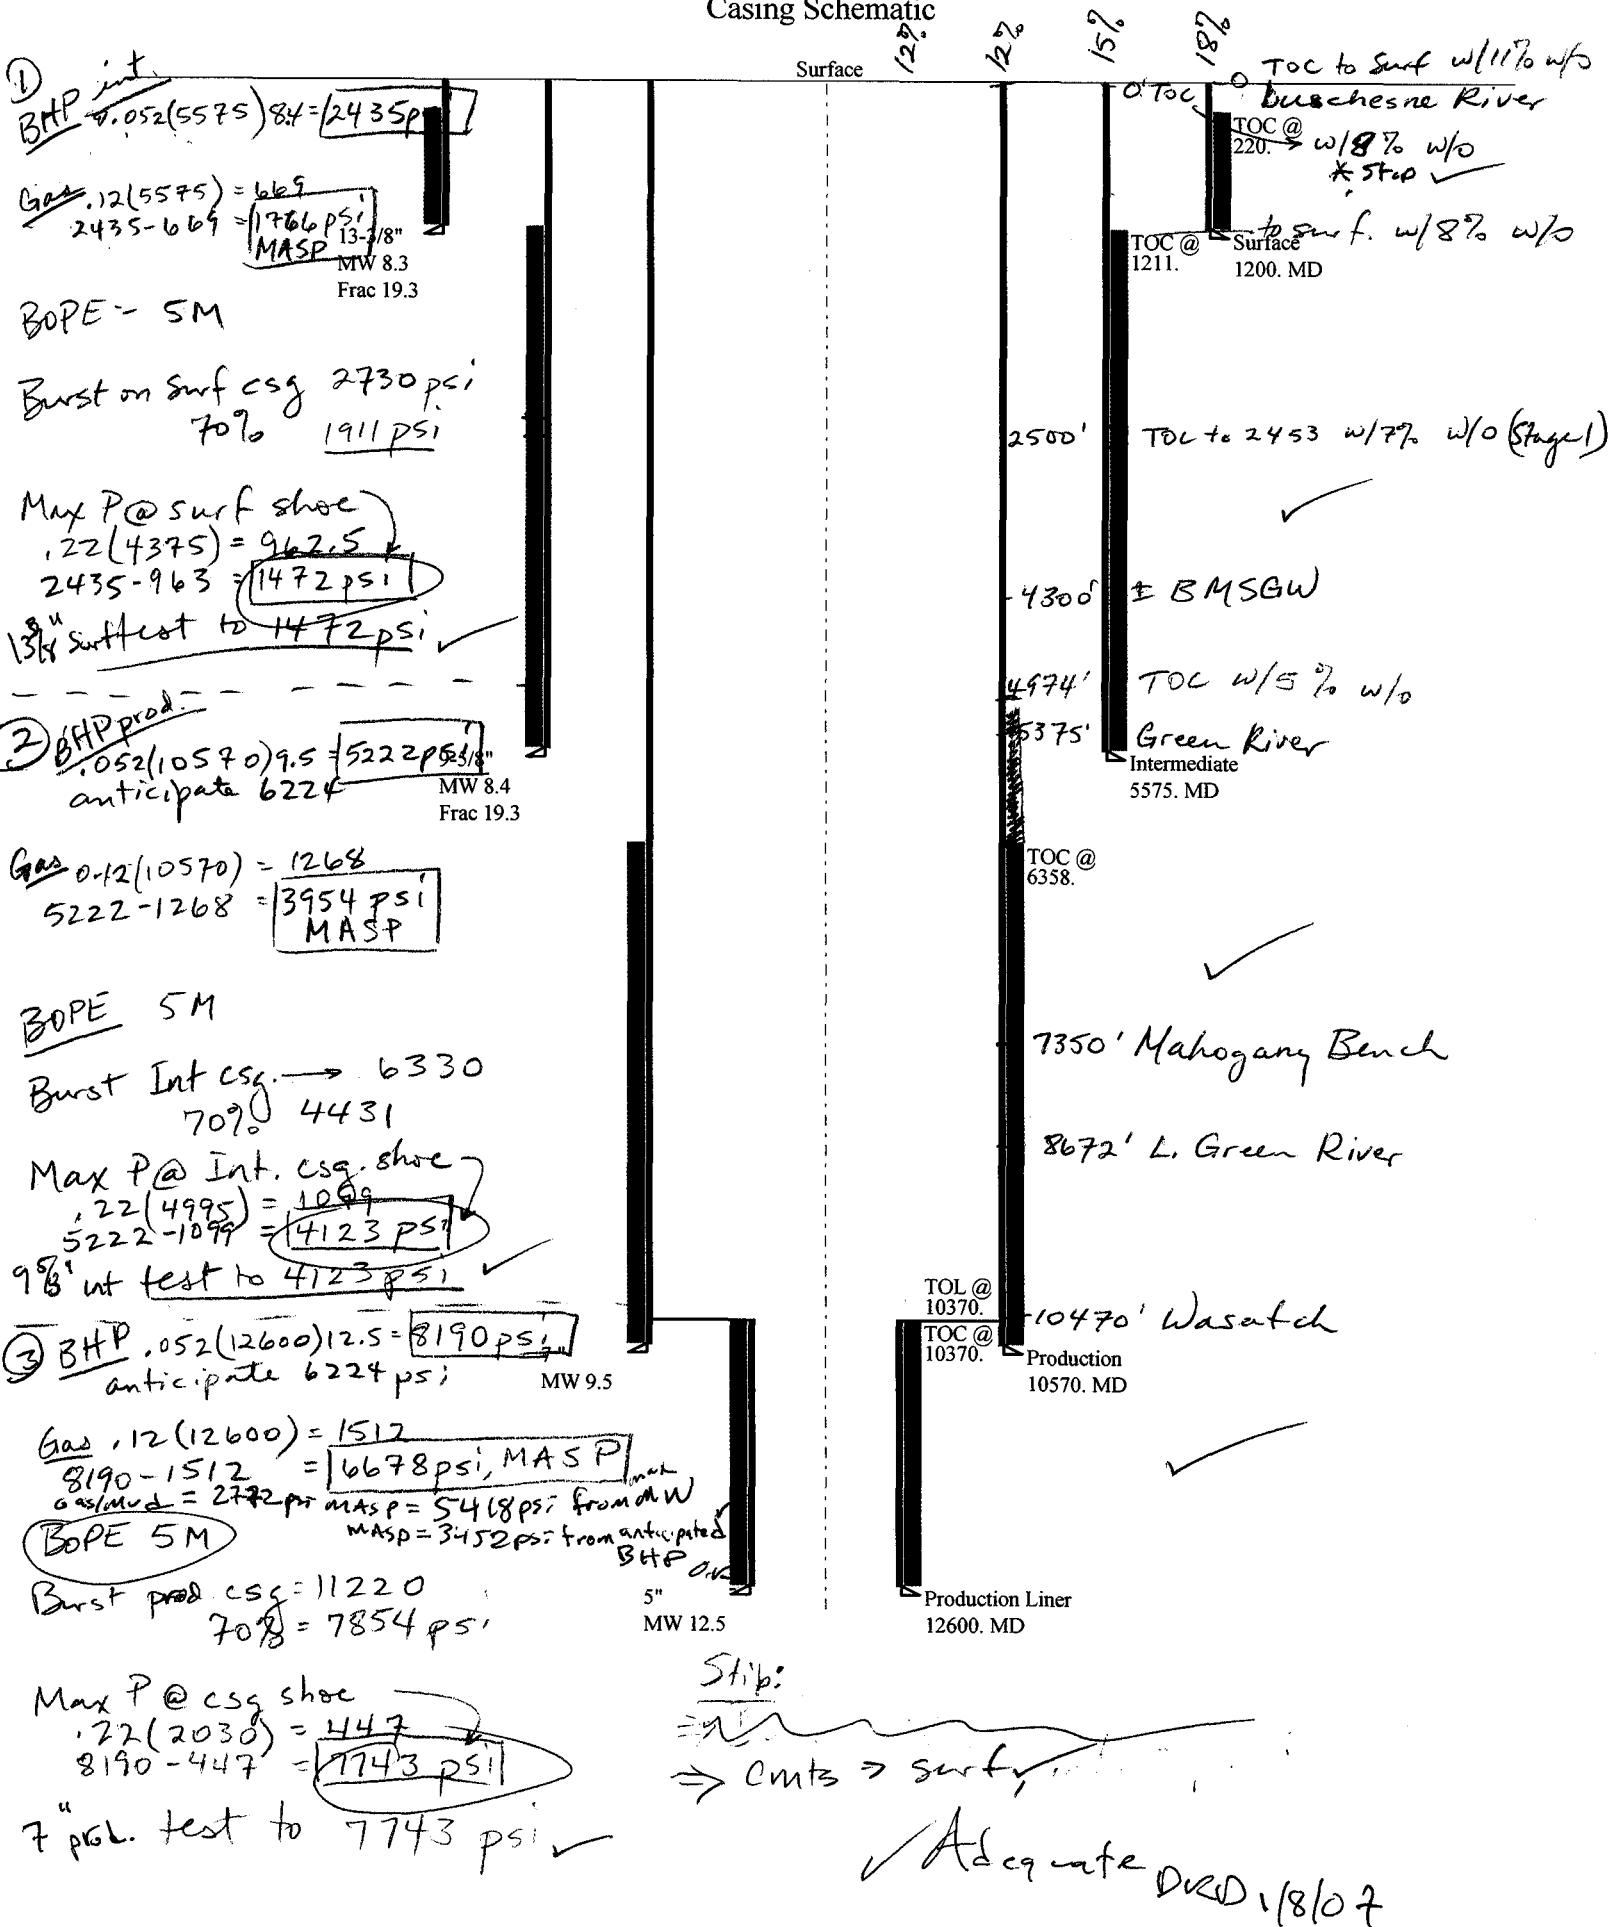 Casing Schematic
Surface
12%
12%
15%
18%
①
BHP int.
0.052(5575)8.4=2435p
Gas .12(5575) = 669
2435-669 = 1766 psi
MASP
13-3/8"
MW 8.3
Frac 19.3
BOPE - 5M
Burst on Surf csg 2730 psi
70% 1911 psi
Max P@ surf shoe
.22(4375) = 962.5
2435-963 = 1472 psi
13 3/8" Surf test to 1472 psi ✓
② BHP prod.
.052(10570)9.5 = 5222 psi
anticipate 6224
9-5/8"
MW 8.4
Frac 19.3
Gas 0.12(10570) = 1268
5222-1268 = 3954 psi
MASP
BOPE 5M
Burst Int csg. → 6330
70% 4431
Max P@ Int. csg. shoe
.22(4995) = 1099
5222-1099 = 4123 psi
9 5/8" int test to 4123 psi ✓
③ BHP .052(12600)12.5 = 8190 psi
anticipate 6224 psi
7"
MW 9.5
Gas .12(12600) = 1512
8190-1512 = 6678 psi, MASP
Gas/Mud = 2772 psi MASP = 5418 psi from max MW
MASP = 3452 psi from anticipated
BHP O.K.
BOPE 5M
Burst prod csg = 11220
70% = 7854 psi
5"
MW 12.5
Max P @ csg shoe
.22(2030) = 447
8190-447 = 7743 psi
7" prod. test to 7743 psi ✓
0 TOC to surf w/11% w/o
0' TOC
Duschesne River
TOC @
220.
→ w/8% w/o
* Stip ✓
to surf. w/8% w/o
TOC @
1211.
Surface
1200. MD
2500' TOC to 2453 w/7% w/o (Stage 1)
✓
4300' ± BMSGW
4974' TOC w/5% w/o
5375' Green River
Intermediate
5575. MD
TOC @
6358.
✓
7350' Mahogany Bench
8672' L. Green River
TOL @
10370.
10470' Wasatch
TOC @
10370.
Production
10570. MD
✓
Production Liner
12600. MD
Stip:
⇒ Cmts > surf ✓
✓ Adequate
DRD 1/8/07